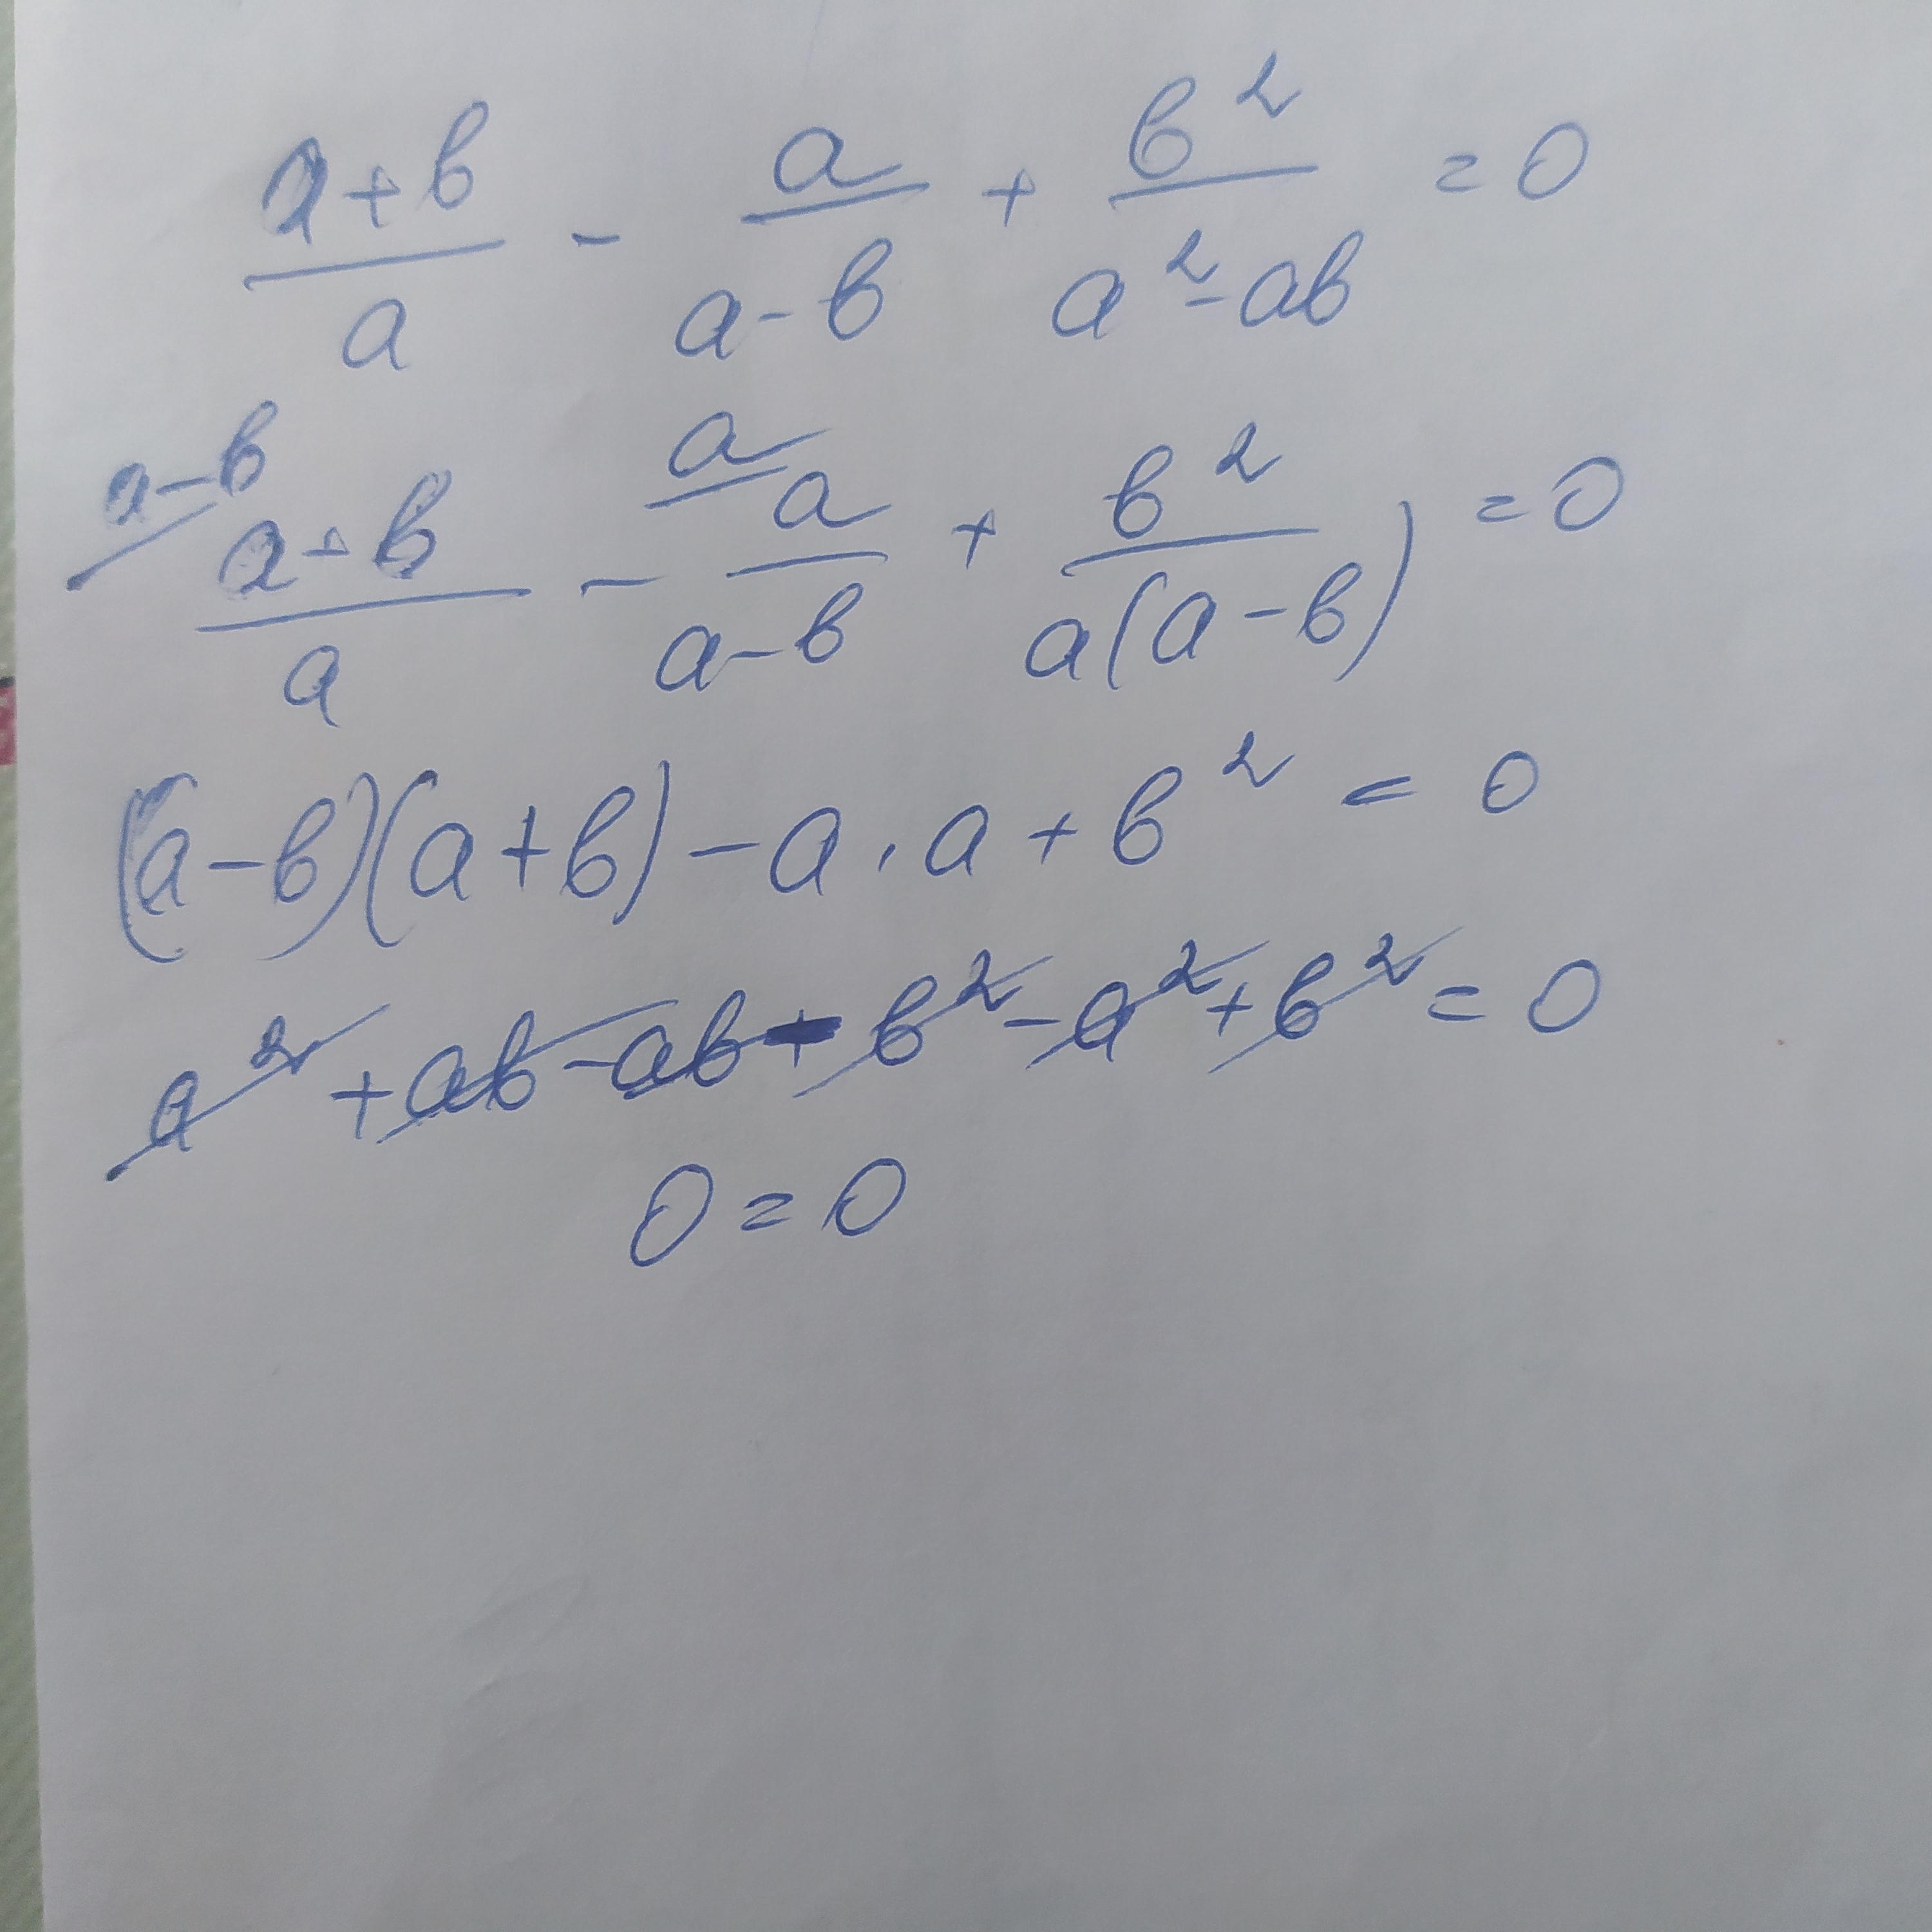 (a+b)/a - a/(a-b) + b²/(a²-ab) = 0
a-b/ (a+b)/a - a/ a/(a-b) + b²/(a(a-b)) = 0
(a-b)(a+b) - a·a + b² = 0
a² + ab - ab - b² - a² + b² = 0
0 = 0